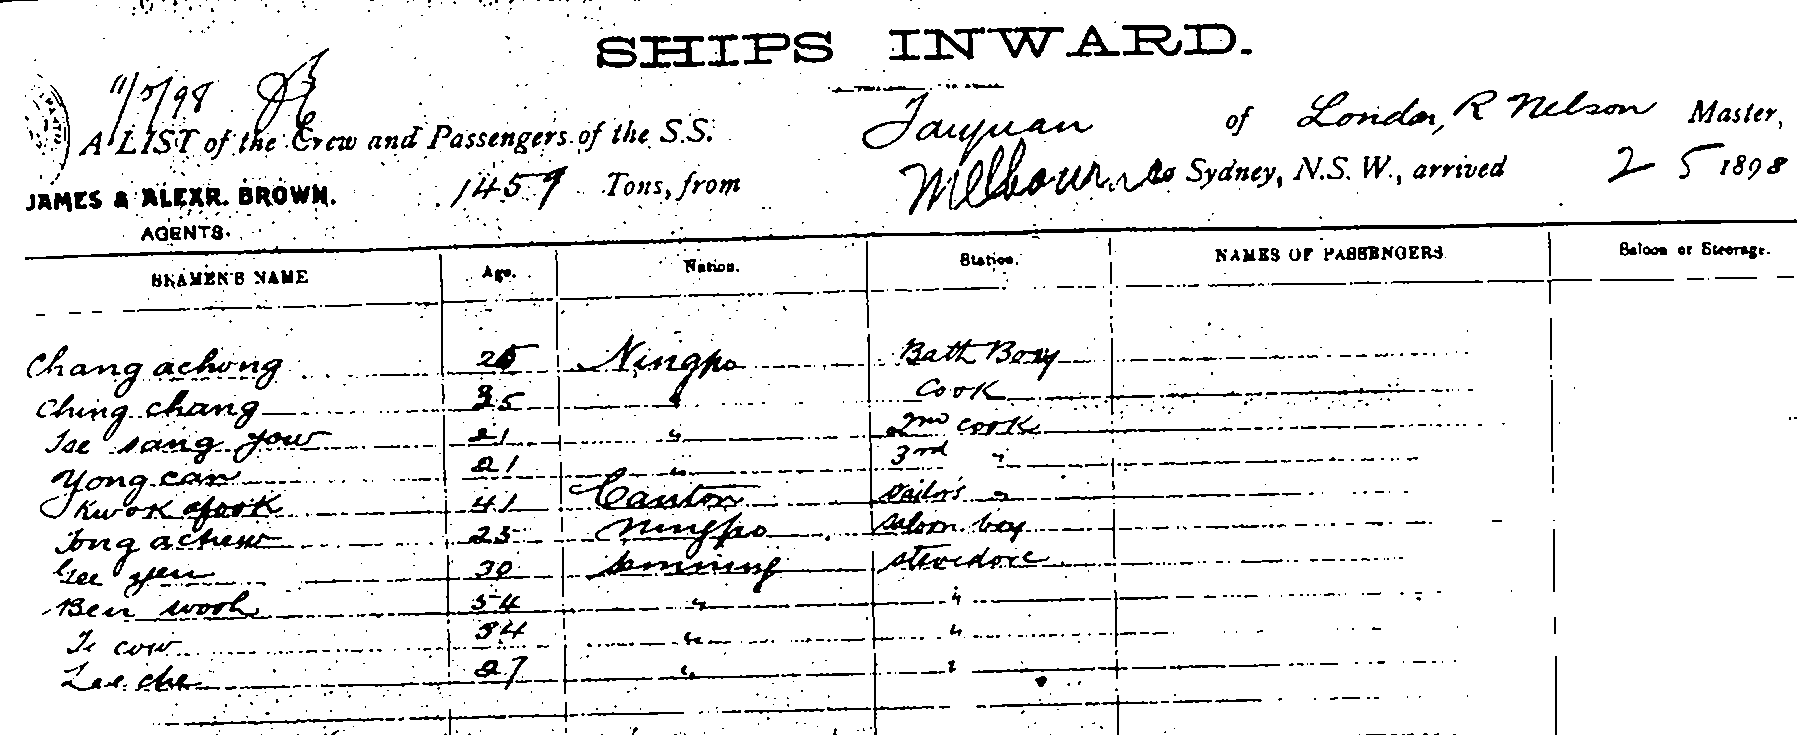 SHIPS INWARD.
11/5/98
A LIST of the Crew and Passengers of the S.S. Taiyuan of London, R Nelson Master,
JAMES & ALEXR. BROWN. 1459 Tons, from Melbourne to Sydney, N.S.W., arrived 2 5 1898
AGENTS.
SEAMEN'S NAME Age. Nation. Station. NAMES OF PASSENGERS Saloon or Steerage.
Chang achong 25 Ningpo Bath Boy
Ching chang 35 " Cook
Tee sang yow 21 " 2nd cook
Yong can 21 " 3rd "
Kwok afook 41 Canton Sailor's "
Tong achew 25 Ningpo Saloon boy
Gee yen 30 Sunning stevedore
Ben wooh 54 " "
Te cow 34 " "
Lee che 27 " "